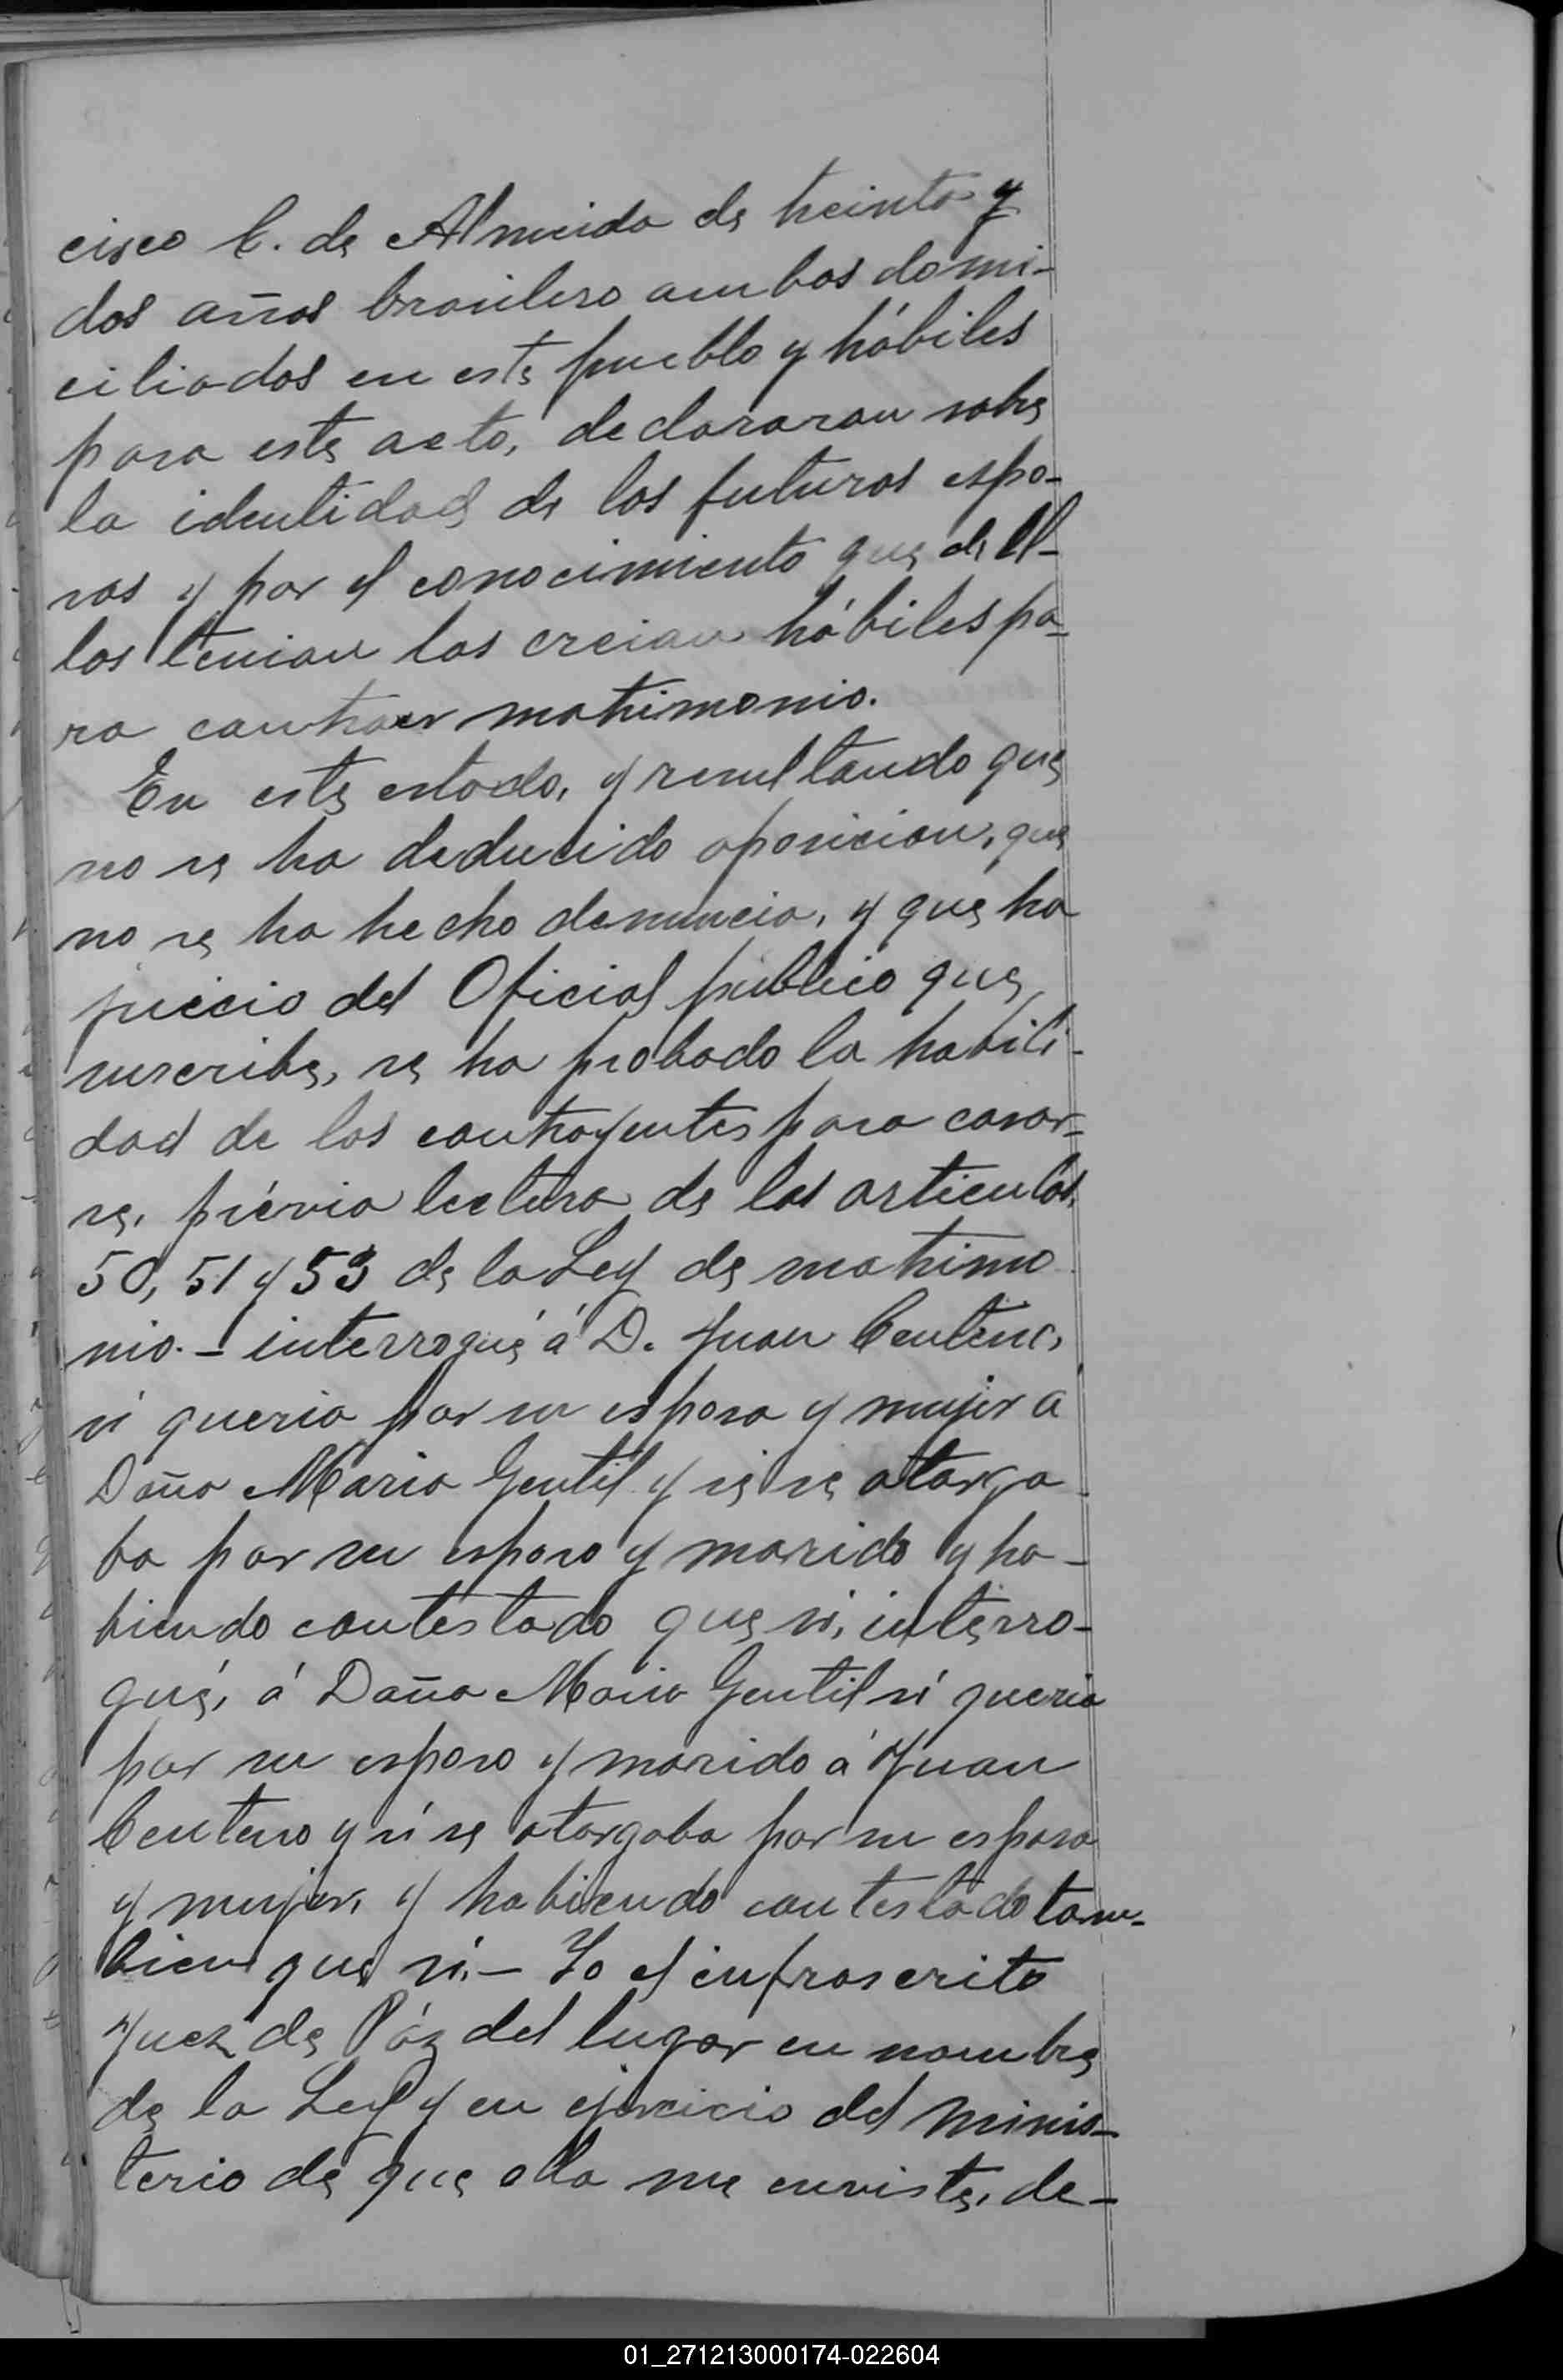 cisco C. de Almeida de treinta y
dos años brasilero ambos domi-
ciliados en este pueblo y hábiles
para este acto, declararan sobre
la identidad de los futuros espo-
sos y por el conocimiento que de el-
los tenian los creian hábiles pa-
ra contraer matrimonio.
En este estado, y resultando que
no se ha deducido oposicion, que
no se ha hecho denuncia, y que ha
juicio del Oficial público que
suscribe, se ha probado la habili-
dad de los contrayentes para casar-
se, prévia lectura de los articulos
50, 51 y 53 de la Ley de matrimo
nio. - interrogué á D. Juan Centeno,
si queria por su esposa y mujer a
Doña Maria Gentil y si se otorga-
ba por su esposo y marido y ha-
biendo contestado que si, interro-
gué, á Doña Maria Gentil si queria
por su esposo y marido á Juan
Centeno y si se otorgaba por su esposa
y mujer, y habiendo contestado tam-
bien que si. - Yo el infrascrito
Juez de Páz del lugar en nombre
de la Ley y en ejercicio del minis-
terio de que ella me enviste, de-
01_271213000174-022604